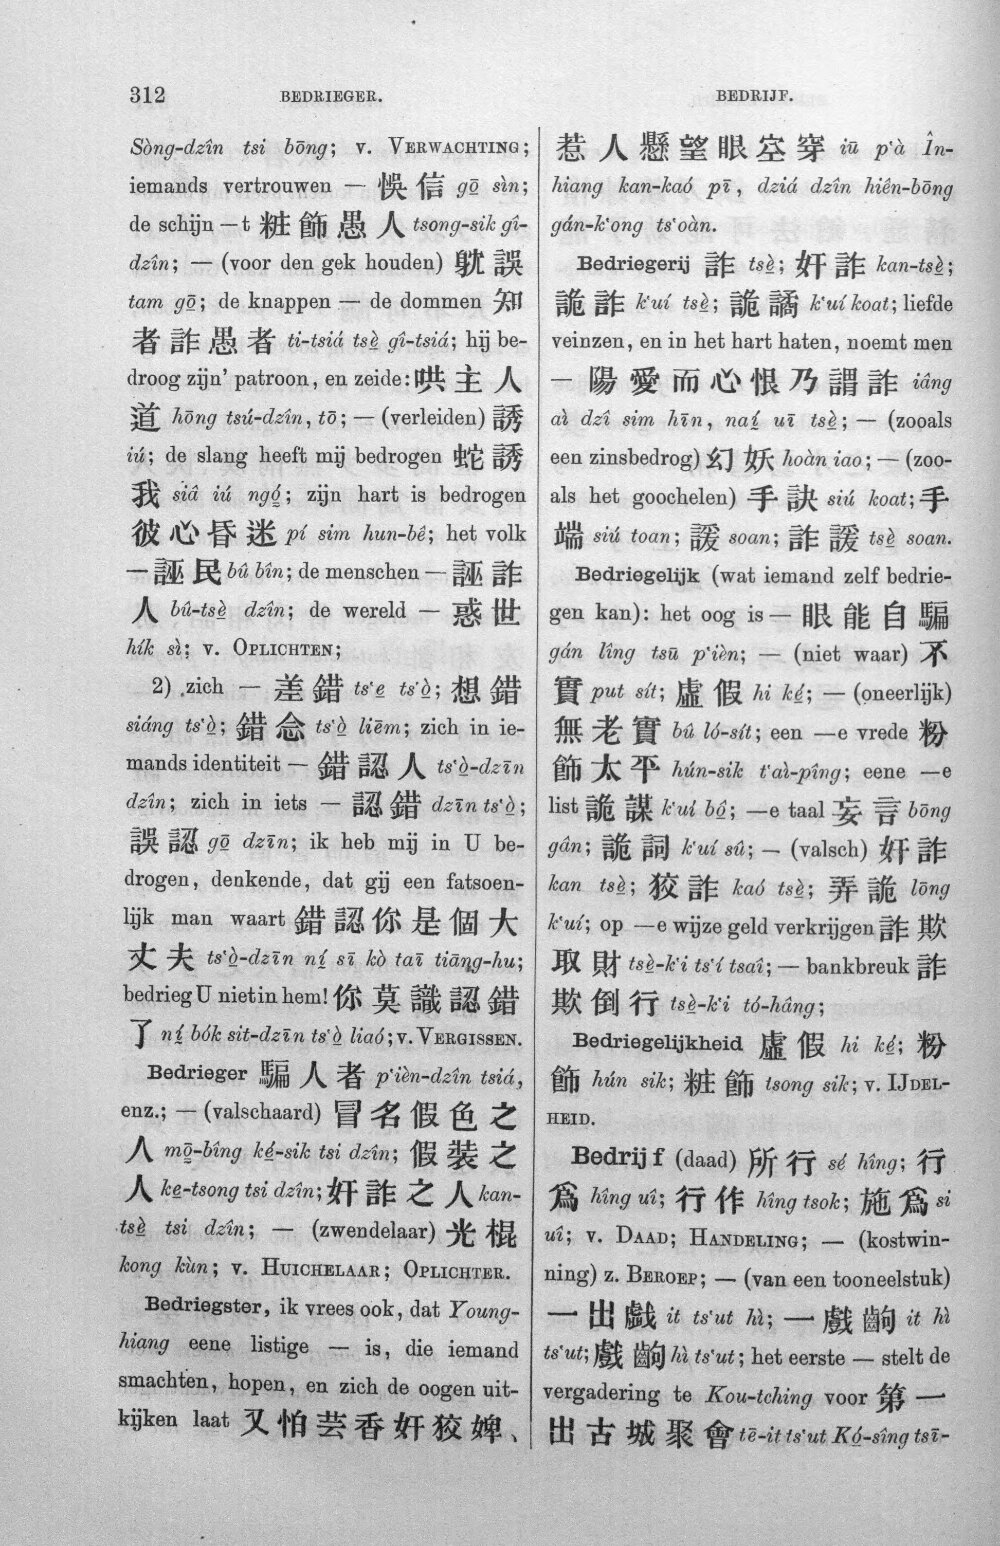 312
BEDRIEGER.
BEDRIJF.
Sòng-dzîn tsi bōng; v. VERWACHTING;
iemands vertrouwen — 悞信 gō̤ sìn;
de schijn —t 粧飾愚人 tsong-sik gî-
dzîn; — (voor den gek houden) 躭誤
tam gō̤; de knappen — de dommen 知
者詐愚者 ti-tsiá tsè̤ gî-tsiá; hij be-
droog zijn' patroon, en zeide: 哄主人
道 hōng tsú-dzîn, tō; — (verleiden) 誘
iú; de slang heeft mij bedrogen 蛇誘
我 siâ iú ngó̤; zijn hart is bedrogen
彼心昏迷 pí sim hun-bê; het volk
— 誣民 bû bîn; de menschen — 誣詐
人 bû-tsè̤ dzîn; de wereld — 惑世
hík sì; v. OPLICHTEN;
2) zich — 差錯 ts‘e̤ ts‘ò̤; 想錯
siáng ts‘ò̤; 錯念 ts‘ò̤ liēm; zich in ie-
mands identiteit — 錯認人 ts‘ò̤-dzīn
dzîn; zich in iets — 認錯 dzīn ts‘ò̤;
誤認 gō̤ dzīn; ik heb mij in U be-
drogen, denkende, dat gij een fatsoen-
lijk man waart 錯認你是個大
丈夫 ts‘ò̤-dzīn ní̤ sī kò taī tiāng-hu;
bedrieg U niet in hem! 你莫識認錯
了 ní̤ bók sit-dzīn ts‘ò̤ liaó; v. VERGISSEN.
Bedrieger 騙人者 p‘ièn-dzîn tsiá,
enz.; — (valschaard) 冒名假色之
人 mō̤-bîng ké̤-sik tsi dzîn; 假裝之
人 ke̤-tsong tsi dzîn; 奸詐之人 kan-
tsè̤ tsi dzîn; — (zwendelaar) 光棍
kong kùn; v. HUICHELAAR; OPLICHTER.
Bedriegster, ik vrees ook, dat Young-
hiang eene listige — is, die iemand
smachten, hopen, en zich de oogen uit-
kijken laat 又怕芸香奸狡婢、
惹人懸望眼空穿 iū p‘à În-
hiang kan-kaó pī, dziá dzîn hiên-bōng
gán-k‘ong ts‘oàn.
Bedriegerij 詐 tsè̤; 奸詐 kan-tsè̤;
詭詐 k‘uí tsè̤; 詭譎 k‘uí koat; liefde
veinzen, en in het hart haten, noemt men
— 陽愛而心恨乃謂詐 iâng
aì dzî sim hīn, naí̤ uī tsè̤; — (zooals
een zinsbedrog) 幻妖 hoàn iao; — (zoo-
als het goochelen) 手訣 siú koat; 手
端 siú toan; 諼 soan; 詐諼 tsè̤ soan.
Bedriegelijk (wat iemand zelf bedrie-
gen kan): het oog is — 眼能自騙
gán lîng tsū p‘ièn; — (niet waar) 不
實 put sít; 虛假 hi ké̤; — (oneerlijk)
無老實 bû ló-sít; een —e vrede 粉
飾太平 hún-sik t‘aì-pîng; eene —e
list 詭謀 k‘uí bô̤; —e taal 妄言 bōng
gân; 詭詞 k‘uí sû; — (valsch) 奸詐
kan tsè̤; 狡詐 kaó tsè̤; 弄詭 lōng
k‘uí; op —e wijze geld verkrijgen 詐欺
取財 tsè̤-k‘i ts‘í tsaî; — bankbreuk 詐
欺倒行 tsè̤-k‘i tó-hâng;
Bedriegelijkheid 虛假 hi ké̤; 粉
飾 hún sik; 粧飾 tsong sik; v. IJDEL-
HEID.
Bedrijf (daad) 所行 sé hîng; 行
爲 hîng uî; 行作 hîng tsok; 施爲 si
uî; v. DAAD; HANDELING; — (kostwin-
ning) z. BEROEP; — (van een tooneelstuk)
一出戱 it ts‘ut hì; 一戲齣 it hì
ts‘ut; 戲齣 hì ts‘ut; het eerste — stelt de
vergadering te Kou-tching voor 第一
出古城聚會 tē-it ts‘ut Kó̤-sîng tsī-